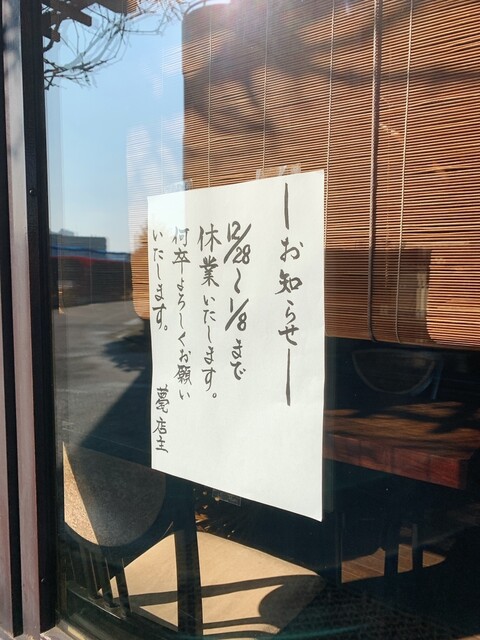 ーお知らせー
12/28〜1/8まで
休業いたします。
何卒よろしくお願い
いたします。
店主